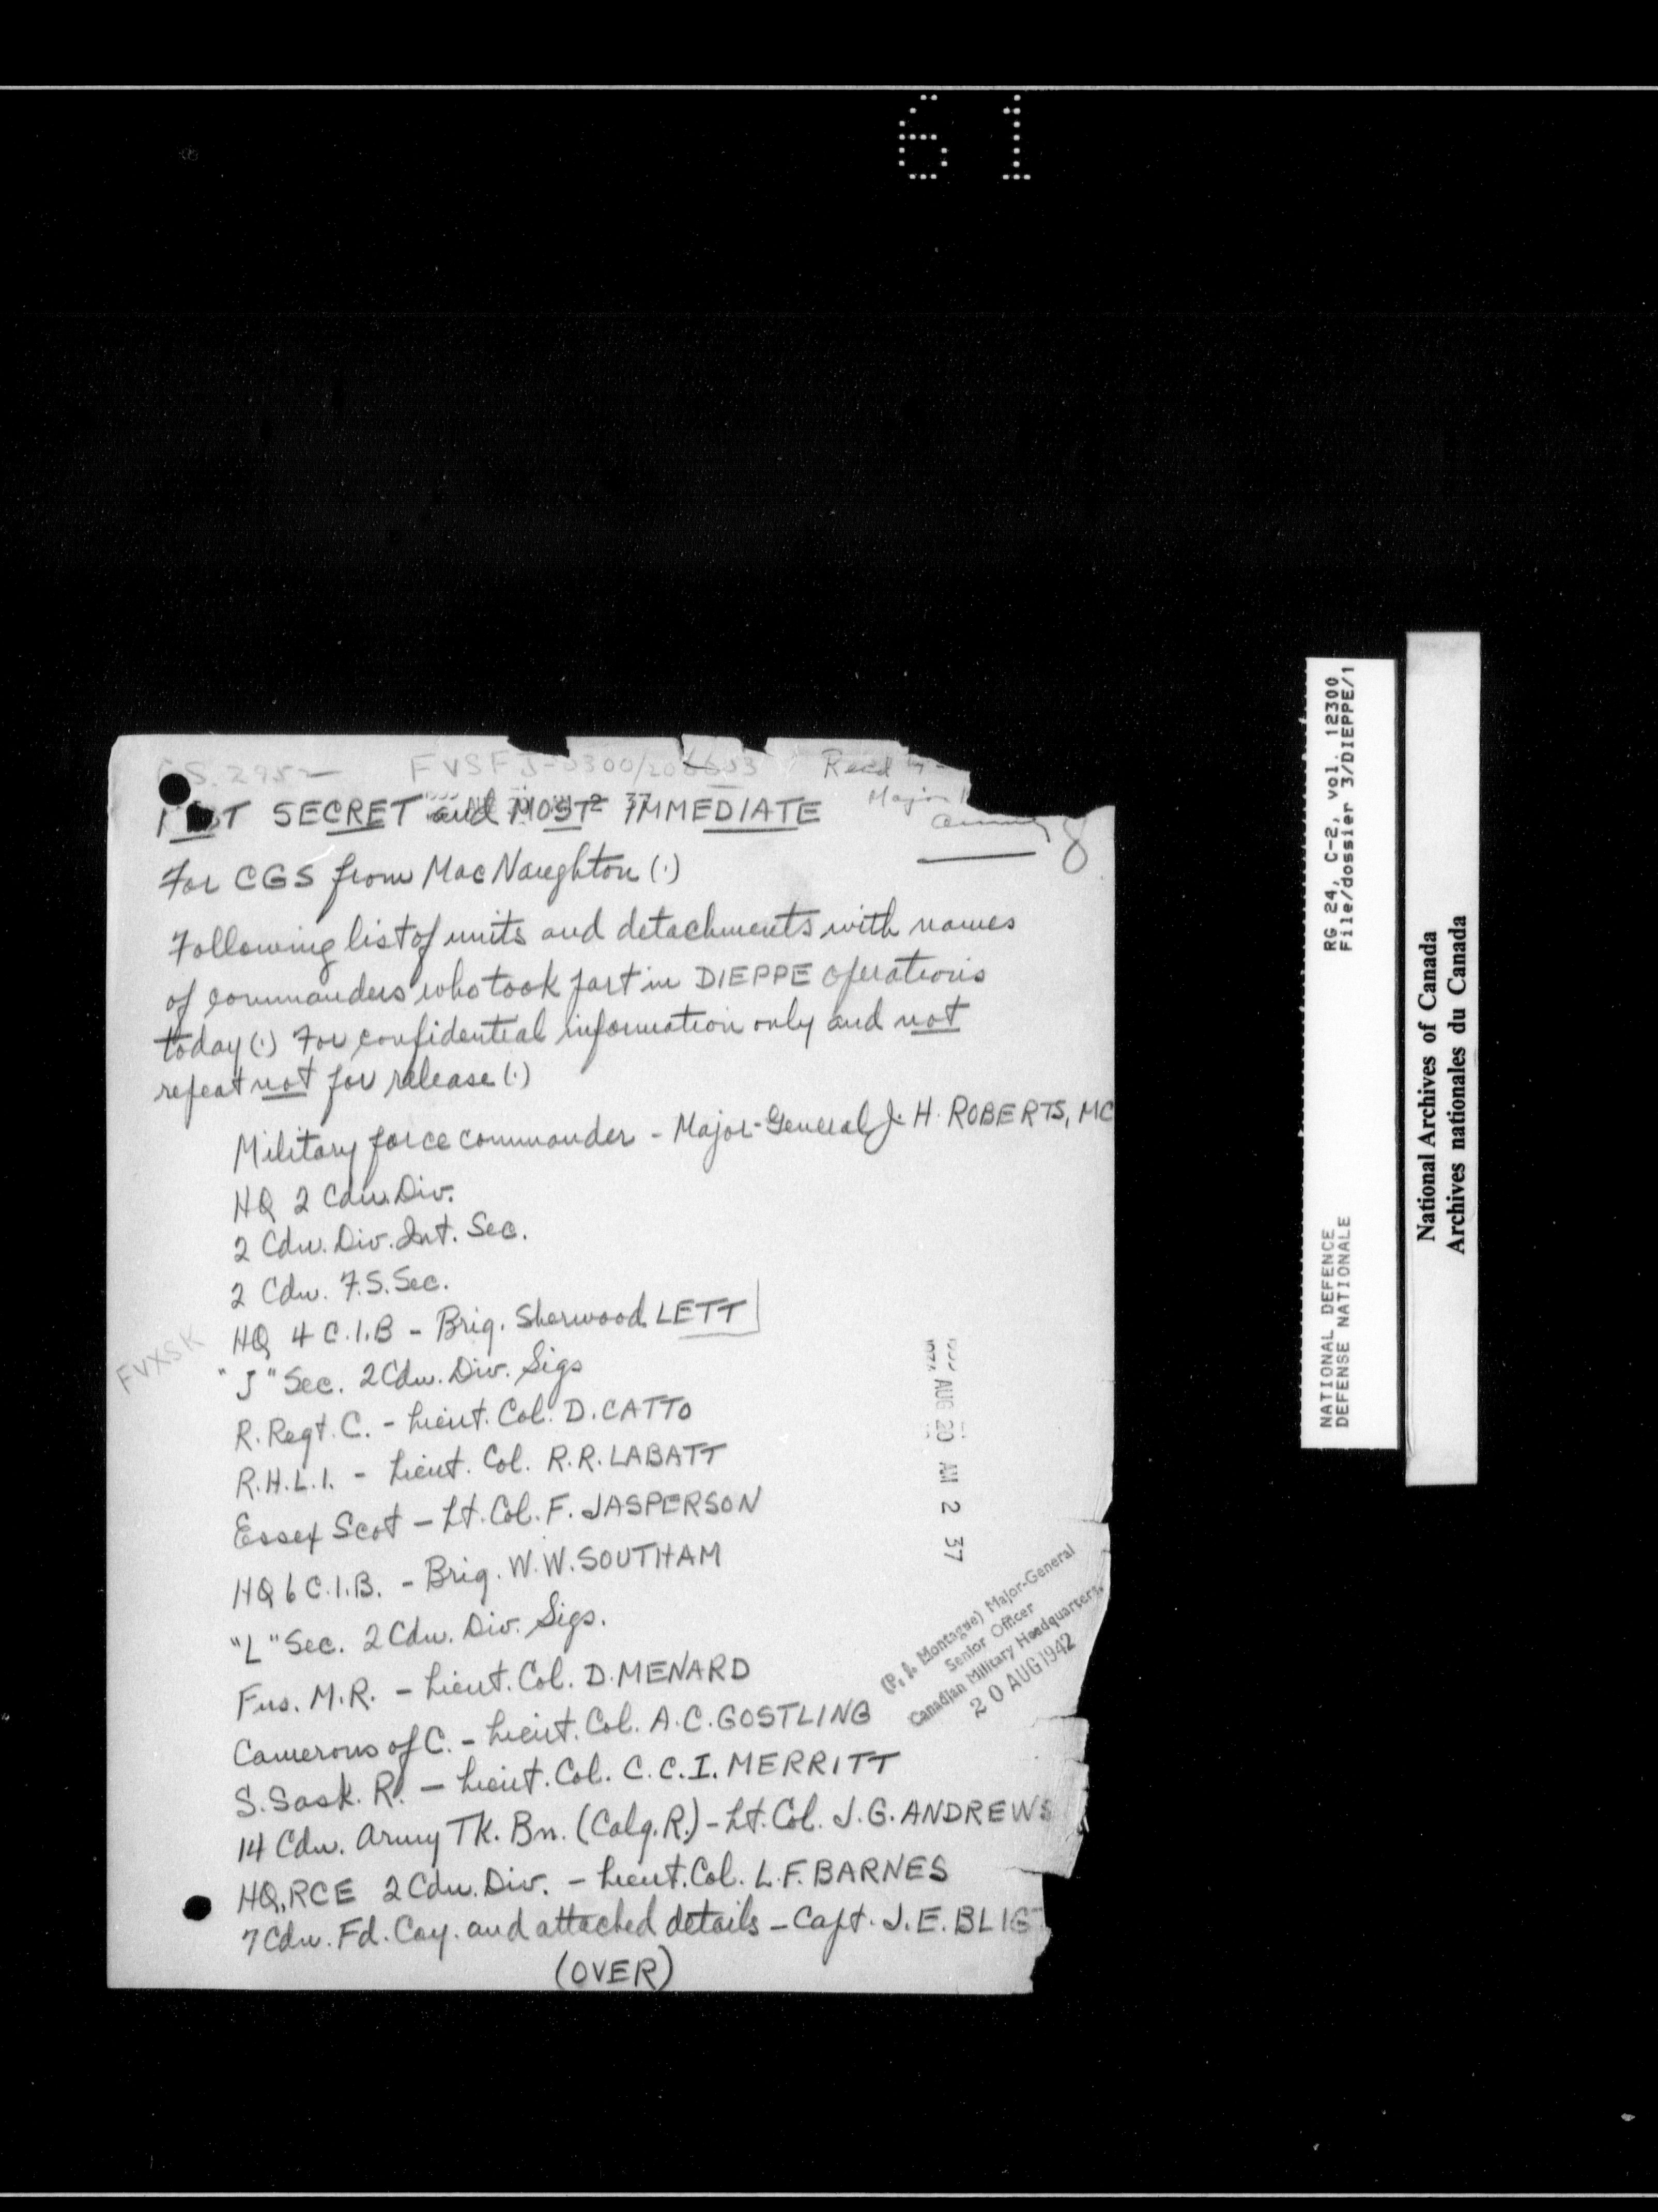 61
FVSFJ-0300/20
Recd
Major
MOST SECRET and MOST IMMEDIATE
8
For CGS from MacNaughton (.)
Following list of units and detachments with names
of commanders who took part in DIEPPE operations
today (.) For confidential information only and not
repeat not for release (.)
Military force commander - Major-General J. H. ROBERTS, MC
HQ 2 Cdn. Div.
2 Cdn. Div. Int. Sec.
2 Cdn. F.S. Sec.
HQ 4 C.I.B - Brig. Sherwood LETT
FVXSK
"J" Sec. 2 Cdn. Div. Sigs
R. Regt. C. - Lieut. Col. D. CATTO
R.H.L.I. - Lieut. Col. R.R. LABATT
Essex Scot - Lt. Col. F. JASPERSON
HQ 6 C.I.B. - Brig. W.W. SOUTHAM
"L" Sec. 2 Cdn. Div. Sigs.
Fus. M.R. - Lieut. Col. D. MENARD
Camerons of C. - Lieut. Col. A.C. GOSTLING
S. Sask. R. - Lieut. Col. C.C.I. MERRITT
14 Cdn. Army TK. Bn. (Calg. R.) - Lt. Col. J.G. ANDREWS
HQ, RCE 2 Cdn. Div. - Lieut. Col. L.F. BARNES
7 Cdn. Fd. Coy. and attached details - Capt. J.E. BLIG
(OVER)
AUG 20 AM 2 37
(P. J. Montague) Major-General
Senior Officer
Canadian Military Headquarters,
20 AUG 1942
RG 24, C-2, vol. 12300
File/dossier 3/DIEPPE/1
NATIONAL DEFENCE
DEFENSE NATIONALE
National Archives of Canada
Archives nationales du Canada